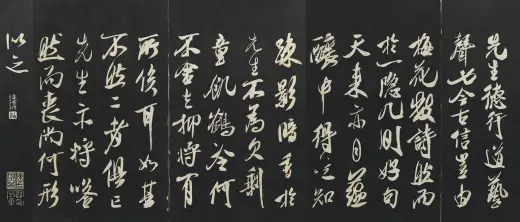 先生德行道藝
聲今古信豈由
梅花数詩然而
於一隱几則好句
天來亦自蘊
釀中得定知
疎影暗香於
先生不為欠剩
童飢鶴冷何
不舍去抑將有
所俟耳如其
不然二者俱已
先生亦將嗒
然而喪尚何形
似之